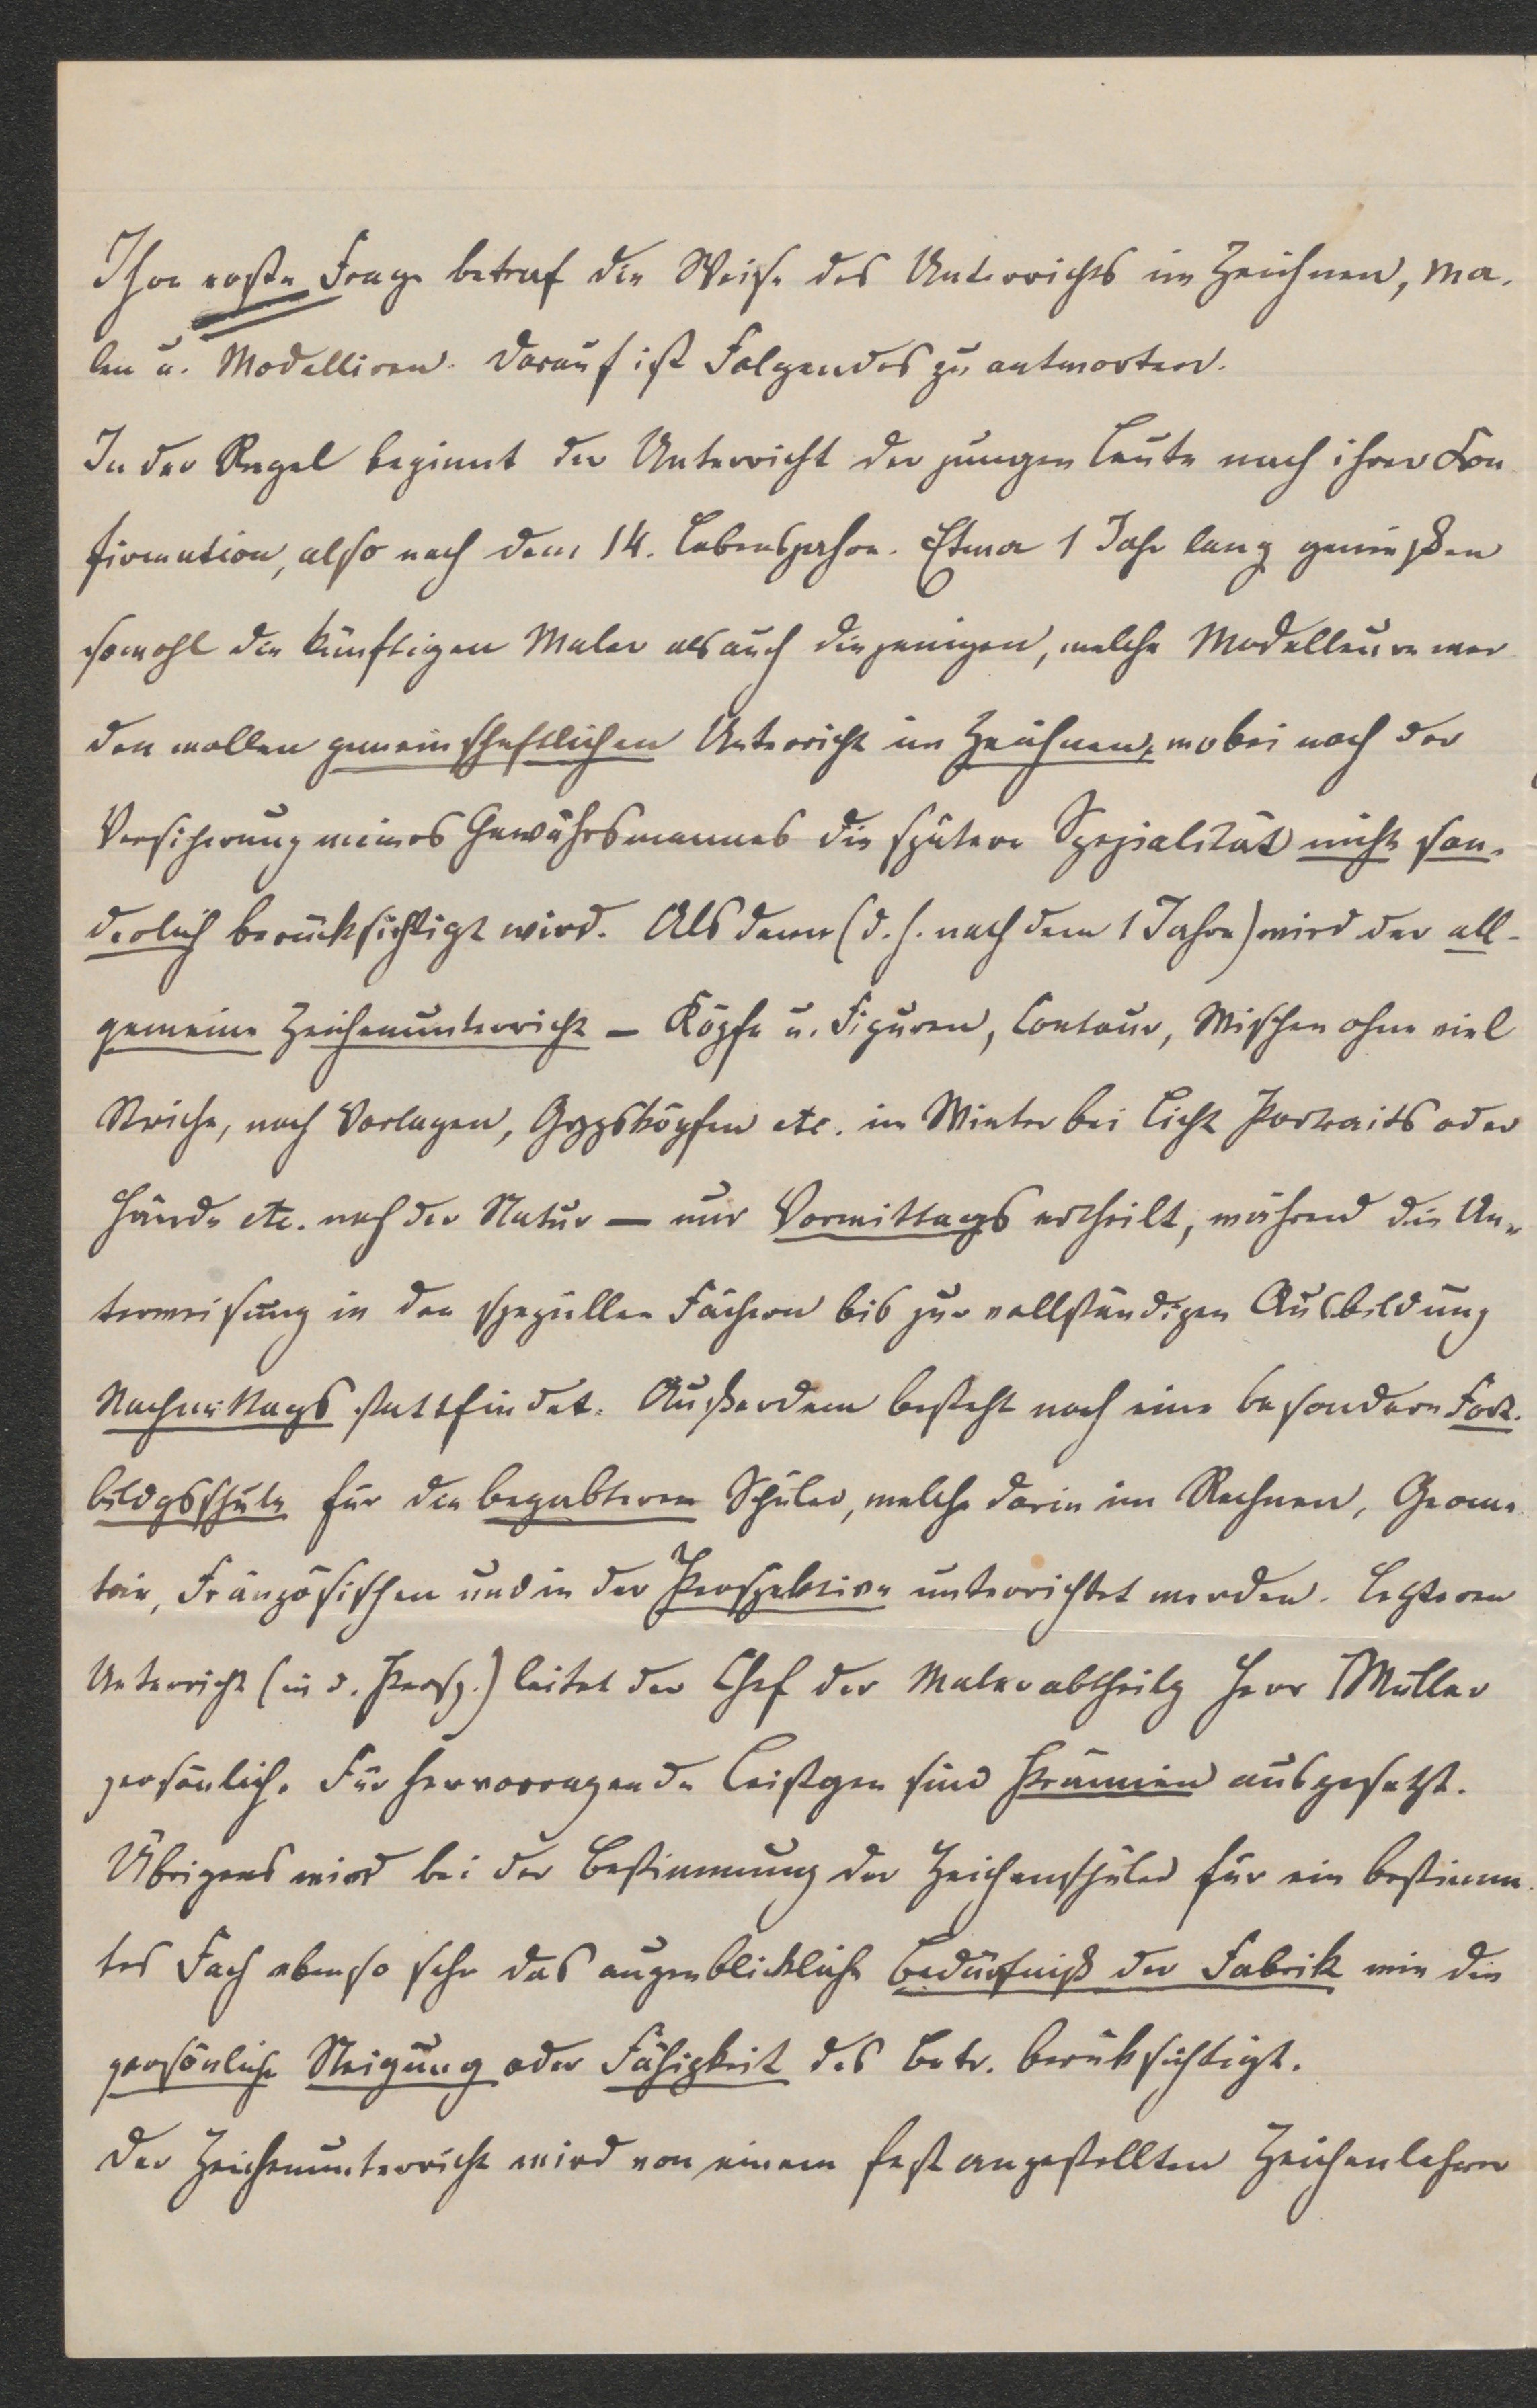 Ihre erste Frage betraf die Weise des Unterrichts im Zeichnen, Ma-
len u. Modelliren. Darauf ist Folgendes zu antworten.
In der Regel beginnt der Unterricht der jungen Leute nach ihrer Con-
firmation, also nach dem 14. Lebensjahre. Etwa 1 Jahr lang genießen
sowohl die künftigen Maler als auch diejenigen, welche Modelleure wer-
den wollen gemeinschaftlichen Unterricht im Zeichnen, wobei nach der
Versicherung meines Gewährsmannes die spätere Spezialität nicht son-
derlich berücksichtigt wird. Alsdann (d. h. nach dem 1 Jahre) wird der all-
gemeine Zeichenunterricht – Köpfe u. Figuren, Contour, Wischen ohne viel
Striche, nach Vorlagen, Gypsköpfen etc. im Winter bei Licht Portraits oder
Hände etc. nach der Natur – nur Vormittags ertheilt, während die Un-
terweisung in den speziellen Fächern bis zur vollständigen Ausbildung
Nachmittags stattfindet. Außerdem besteht noch eine besondere Fort-
bildgsschule für die begabteren Schüler, welche darin im Rechnen, Geome-
trie, Französischen und in der Perspektive unterrichtet werden. Letzteren
Unterricht (in d. Persp.) leitet der Chef der Malerabtheilg Herr Müller
persönlich. Für hervorragende Leistgen sind Prämien ausgesetzt.
Übrigens wird bei der Bestimmung der Zeichenschüler für ein bestimm-
tes Fach ebenso sehr das augenblickliche Bedürfniß der Fabrik wie die
persönliche Neigung oder Fähigkeit des Betr. berücksichtigt.
Der Zeichenunterricht wird von einem fest angestellten Zeichenlehrer